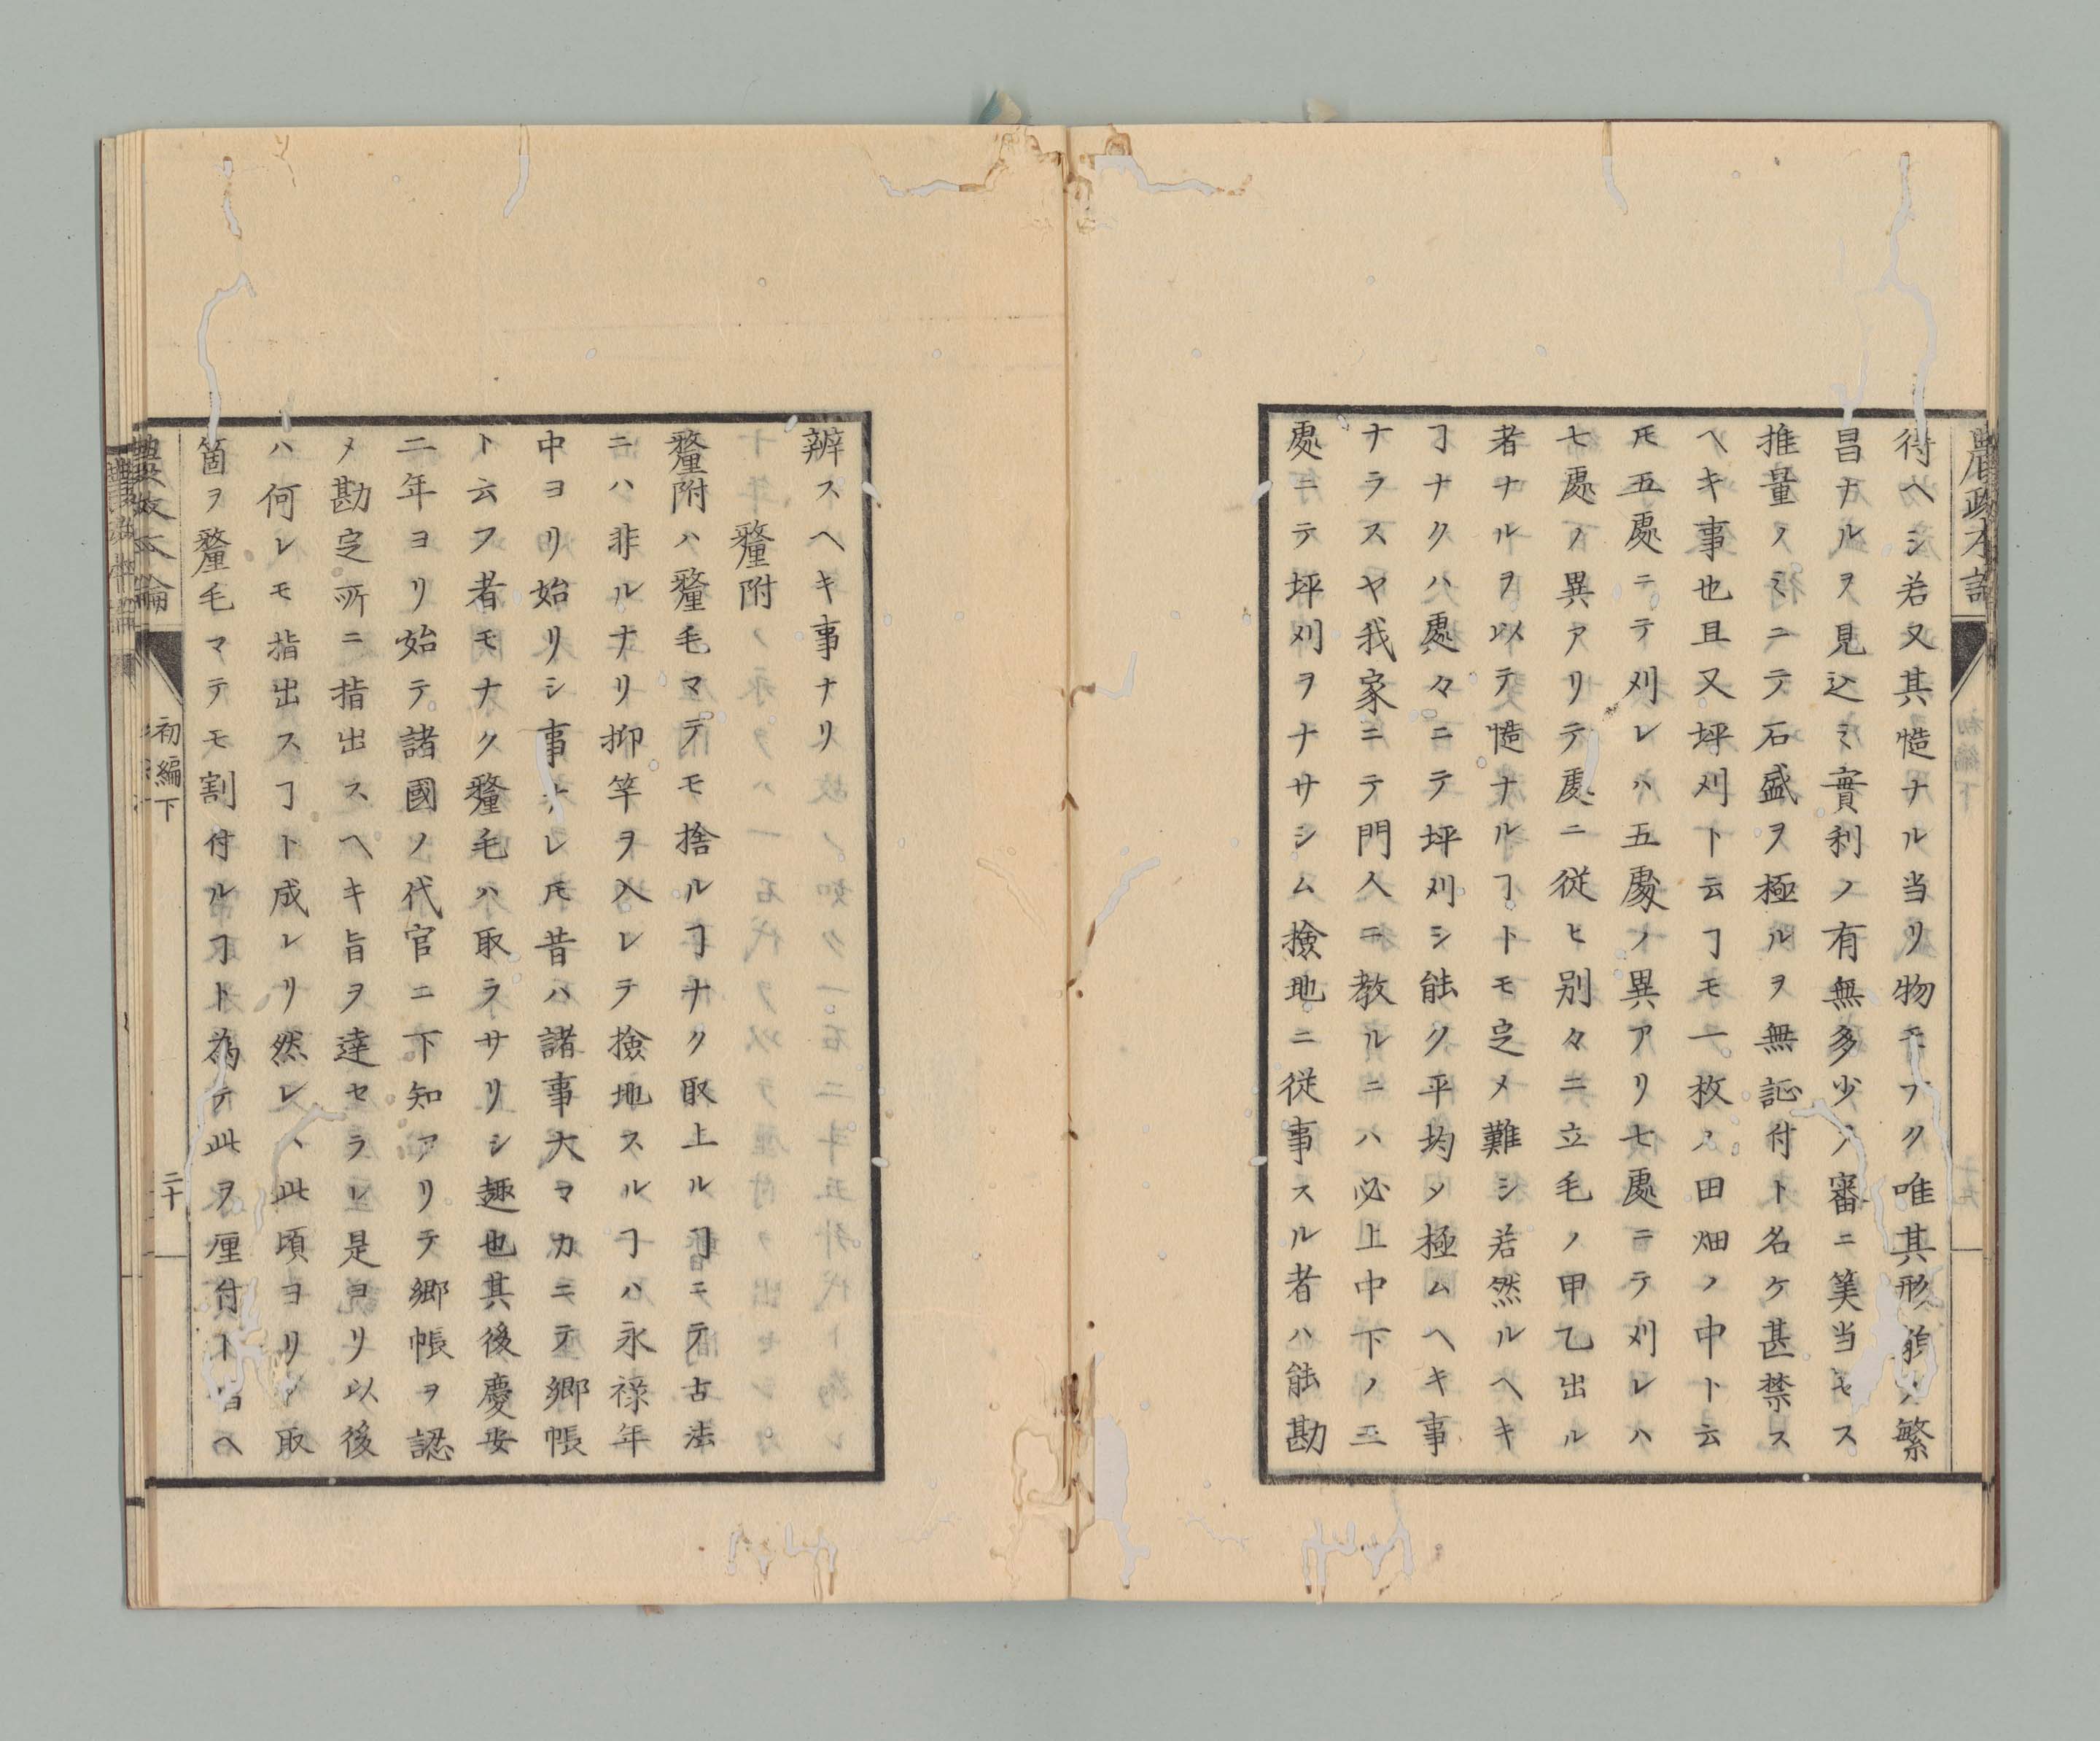 得ヘシ若又其慥ナル当リ物モフク唯其形ノ繁
昌ナルヲ見込ミ實利ノ有無多少ノ審ニ筭当セス
推量ノミニテ石盛ヲ極ルヲ無証付ト名ケ甚禁ス
ヘキ事也且又坪刈ト云ヿモ一枚ノ田畑ノ中ト云
𪜈五處ニテ刈レハ五處ノ異アリ七處ニテ刈レハ
七處ノ異アリテ處ニ従ヒ別々ニ立毛ノ甲乙出ル
者ナルヲ以テ慥ナルヿトモ定メ難シ若然ルヘキ
ヿナクハ處々ニテ坪刈シ能ク平均メ極ムヘキ事
ナラスヤ我家ニテ門人ニ教ルニハ必上中下ノ三
處ニテ坪刈ヲナサシム撿地ニ従事スル者ハ能勘
辨スヘキ事ナリ
釐附
釐附ハ釐毛マテモ捨ルヿナク取上ルヿニテ古法
ニハ非ルナリ抑竿ヲ入レテ撿地スルヿハ永禄年
中ヨリ始リシ事ナレ𪜈昔ハ諸事大マカニテ郷帳
ト云フ者モナク釐毛ハ取ラサリシ趣也其後慶安
二年ヨリ始テ諸國ノ代官ニ下知アリテ郷帳ヲ認
メ勘定所ニ指出スヘキ旨ヲ達セラレ是ヨリ以後
ハ何レモ指出スヿト成レリ然レハ此頃ヨリノ取
箇ヲ釐毛マテモ割付ルヿト為テ此ヲ厘付トヘ
初編下
二十